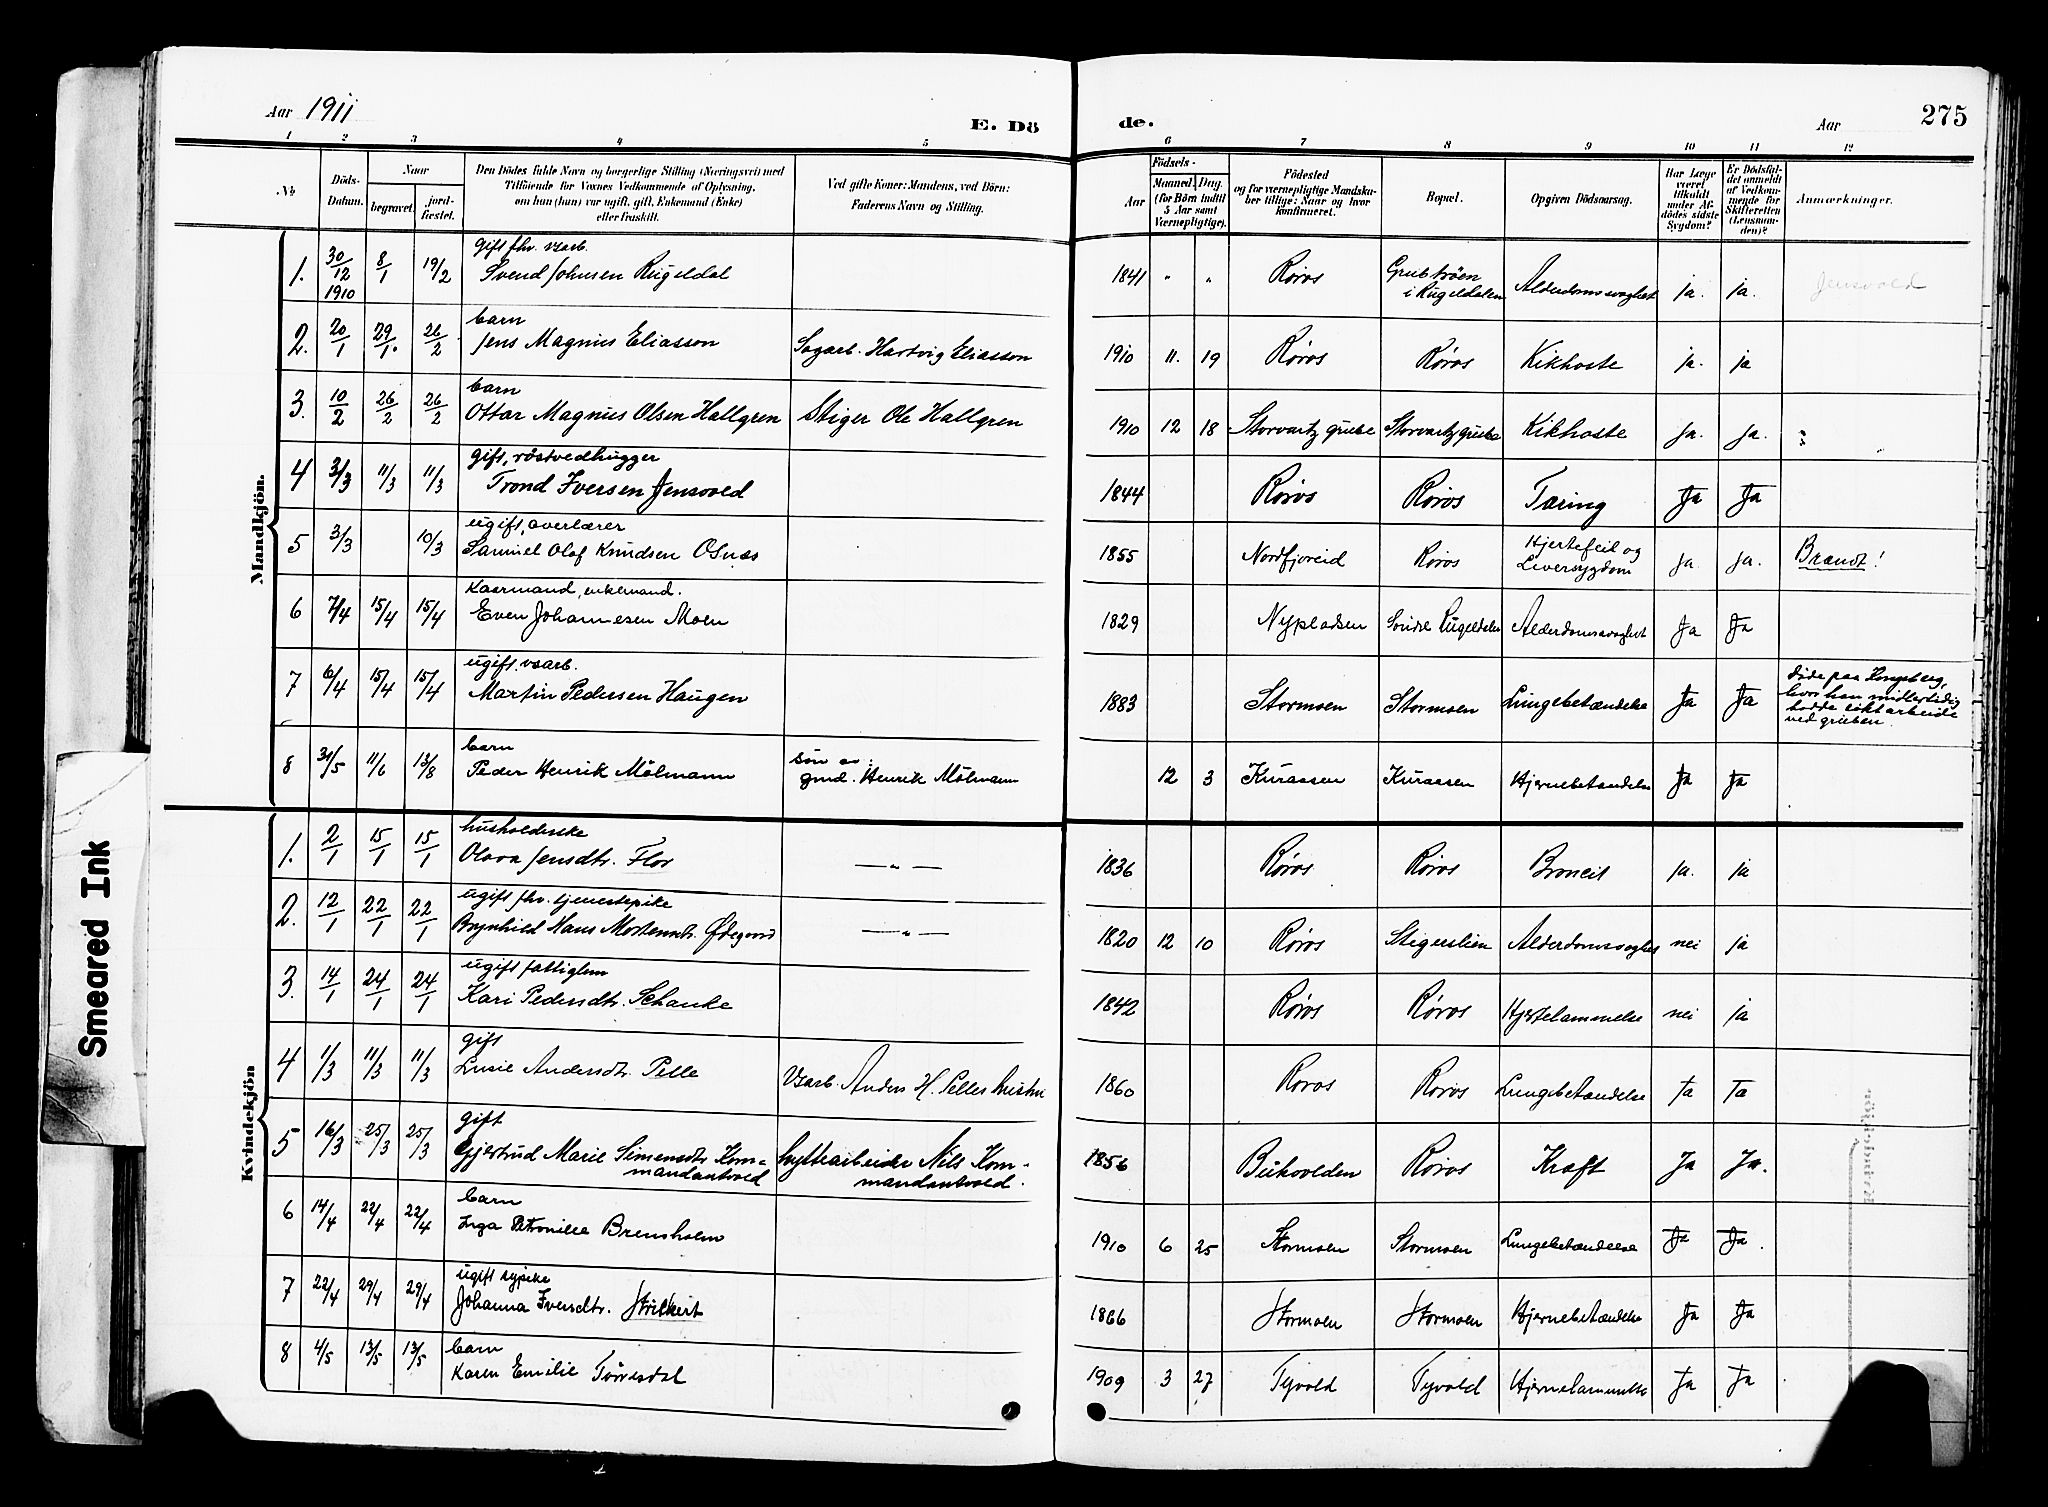 Aar 1911
E. Dö
de.
Aar
275
1 2 3 4 5 6 7 8 9 10 11 12
No
Döds-
Datum.
Naar
begravet.
jord-
fæstet.
Den Dödes fulde Navn og borgerlige Stilling (Næringsvei) med
Tilföiende for Voxnes Vedkommende af Oplysning,
om han (hun) var ugift, gift, Enkemand (Enke)
eller fraskilt.
Ved gifte Koner: Mandens, ved Börn:
Faderens Navn og Stilling.
Födsels-
Aar
Maaned. Dag.
(for Börn indtil
5 Aar samt
Værnepligtige).
Födested
og for værnepligtige Mandska-
ber tillige: Naar og hvor
konfirmeret.
Bopæl.
Opgiven Dödsaarsag.
Har Læge
været
tilkaldt
under Af-
dödes sidste
Sygdom?
Er Dödsfal-
det anmeldt
af Vedkom-
mende for
Skifteretten
(Lensman-
den)?
Anmærkninger.
Mandkjön.
gift fhv. varb.
1. 30/12 1910 8/1 19/2 Svend Johnsen Rugeldal 1841 " " Røros Grubtrøen
i Rugeldalen Alderdomssvaghet ja. ja. Jensvold
barn
2. 20/1 29/1. 26/2 Jens Magnus Eliasson Sagarb. Hartvig Eliasson 1910 11. 19 Røros Røros Kikhoste ja. ja
barn
3. 10/2 26/2 26/2 Ottar Magnus Olsen Hallgren Stiger Ole Hallgren 1910 12 18 Storvartz grube Storvartz grube Kikhoste ja. ja.
gift, röstvedhugger
4 3/3 11/3 11/3 Trond Iversen Jensvold 1844 Røros Røros Tæring Ja Ja
ugift, overlærer
5 3/3 10/3 Samuel Olaf Knudsen Osnes 1855 Nordfjoreid Røros Hjertefeil og
Leversygdom ja. ja. Brændt!
Kaarmand, enkemand.
6 7/4 15/4 15/4 Even Johannesen Moen 1829 Nypladsen Söndre Rugeldalen Alderdomssvaghet Ja Ja
ugift. vsarb.
7 6/4 15/4 15/4 Martin Pedersen Haugen 1883 Stormoen Stormoen Lungebetændelse Ja Ja döde paa Kongsberg,
hvor han midlertidig
hadde søkt arbeide
ved gruben.
barn
8 31/5 11/6 13/8 Peder Henrik Mölmann sön av:
gmd. Henrik Mölmann 12 3 Kuraasen Kuraasen Hjernebetændelse Ja Ja
Kvindekjön
husholderske
1. 2/1 15/1 15/1 Olava Jensdtr. Flor — " — 1836 Røros Røros Broncit ja. ja
ugift fhv. tjenestepike
2. 12/1 22/1 22/1 Brynhild Hans Mortensdtr. Ødegaard — " — 1820 12 10 Røros Stigerslien Alderdomssvaghet nei ja
ugift fattiglem
3. 14/1 24/1 24/1 Kari Pedersdtr. Schanke 1842 Røros Røros Hjertelammelse nei ja
gift
4 1/3 11/3 11/3 Lusie Andersdtr. Pelle Vsarb. Anders H. Pelles hustru 1860 Røros Røros Lungebetændelse Ja Ja
gift
5 16/3 25/3 25/3 Gjertrud Marie Simensdtr Kom-
mandantvold hyttearbeider Nils Kom-
mandantvold. 1856 Bukvolden Røros Kræft Ja Ja.
barn
6 14/4 22/4 22/4 Inga Petronille Brensholm 1910 6 25 Stormoen Stormoen Lungebetændelse Ja Ja.
ugift sypike
7 22/4 29/4 29/4 Johanna Iversdtr. Strikkert 1866 Stormoen Stormoen Hjernebetændelse Ja Ja
barn
8 4/5 13/5 13/5 Karen Emilie Törresdal 1909 3 27 Tyvold Tyvold Hjernelammelse Ja Ja
Smeared Ink